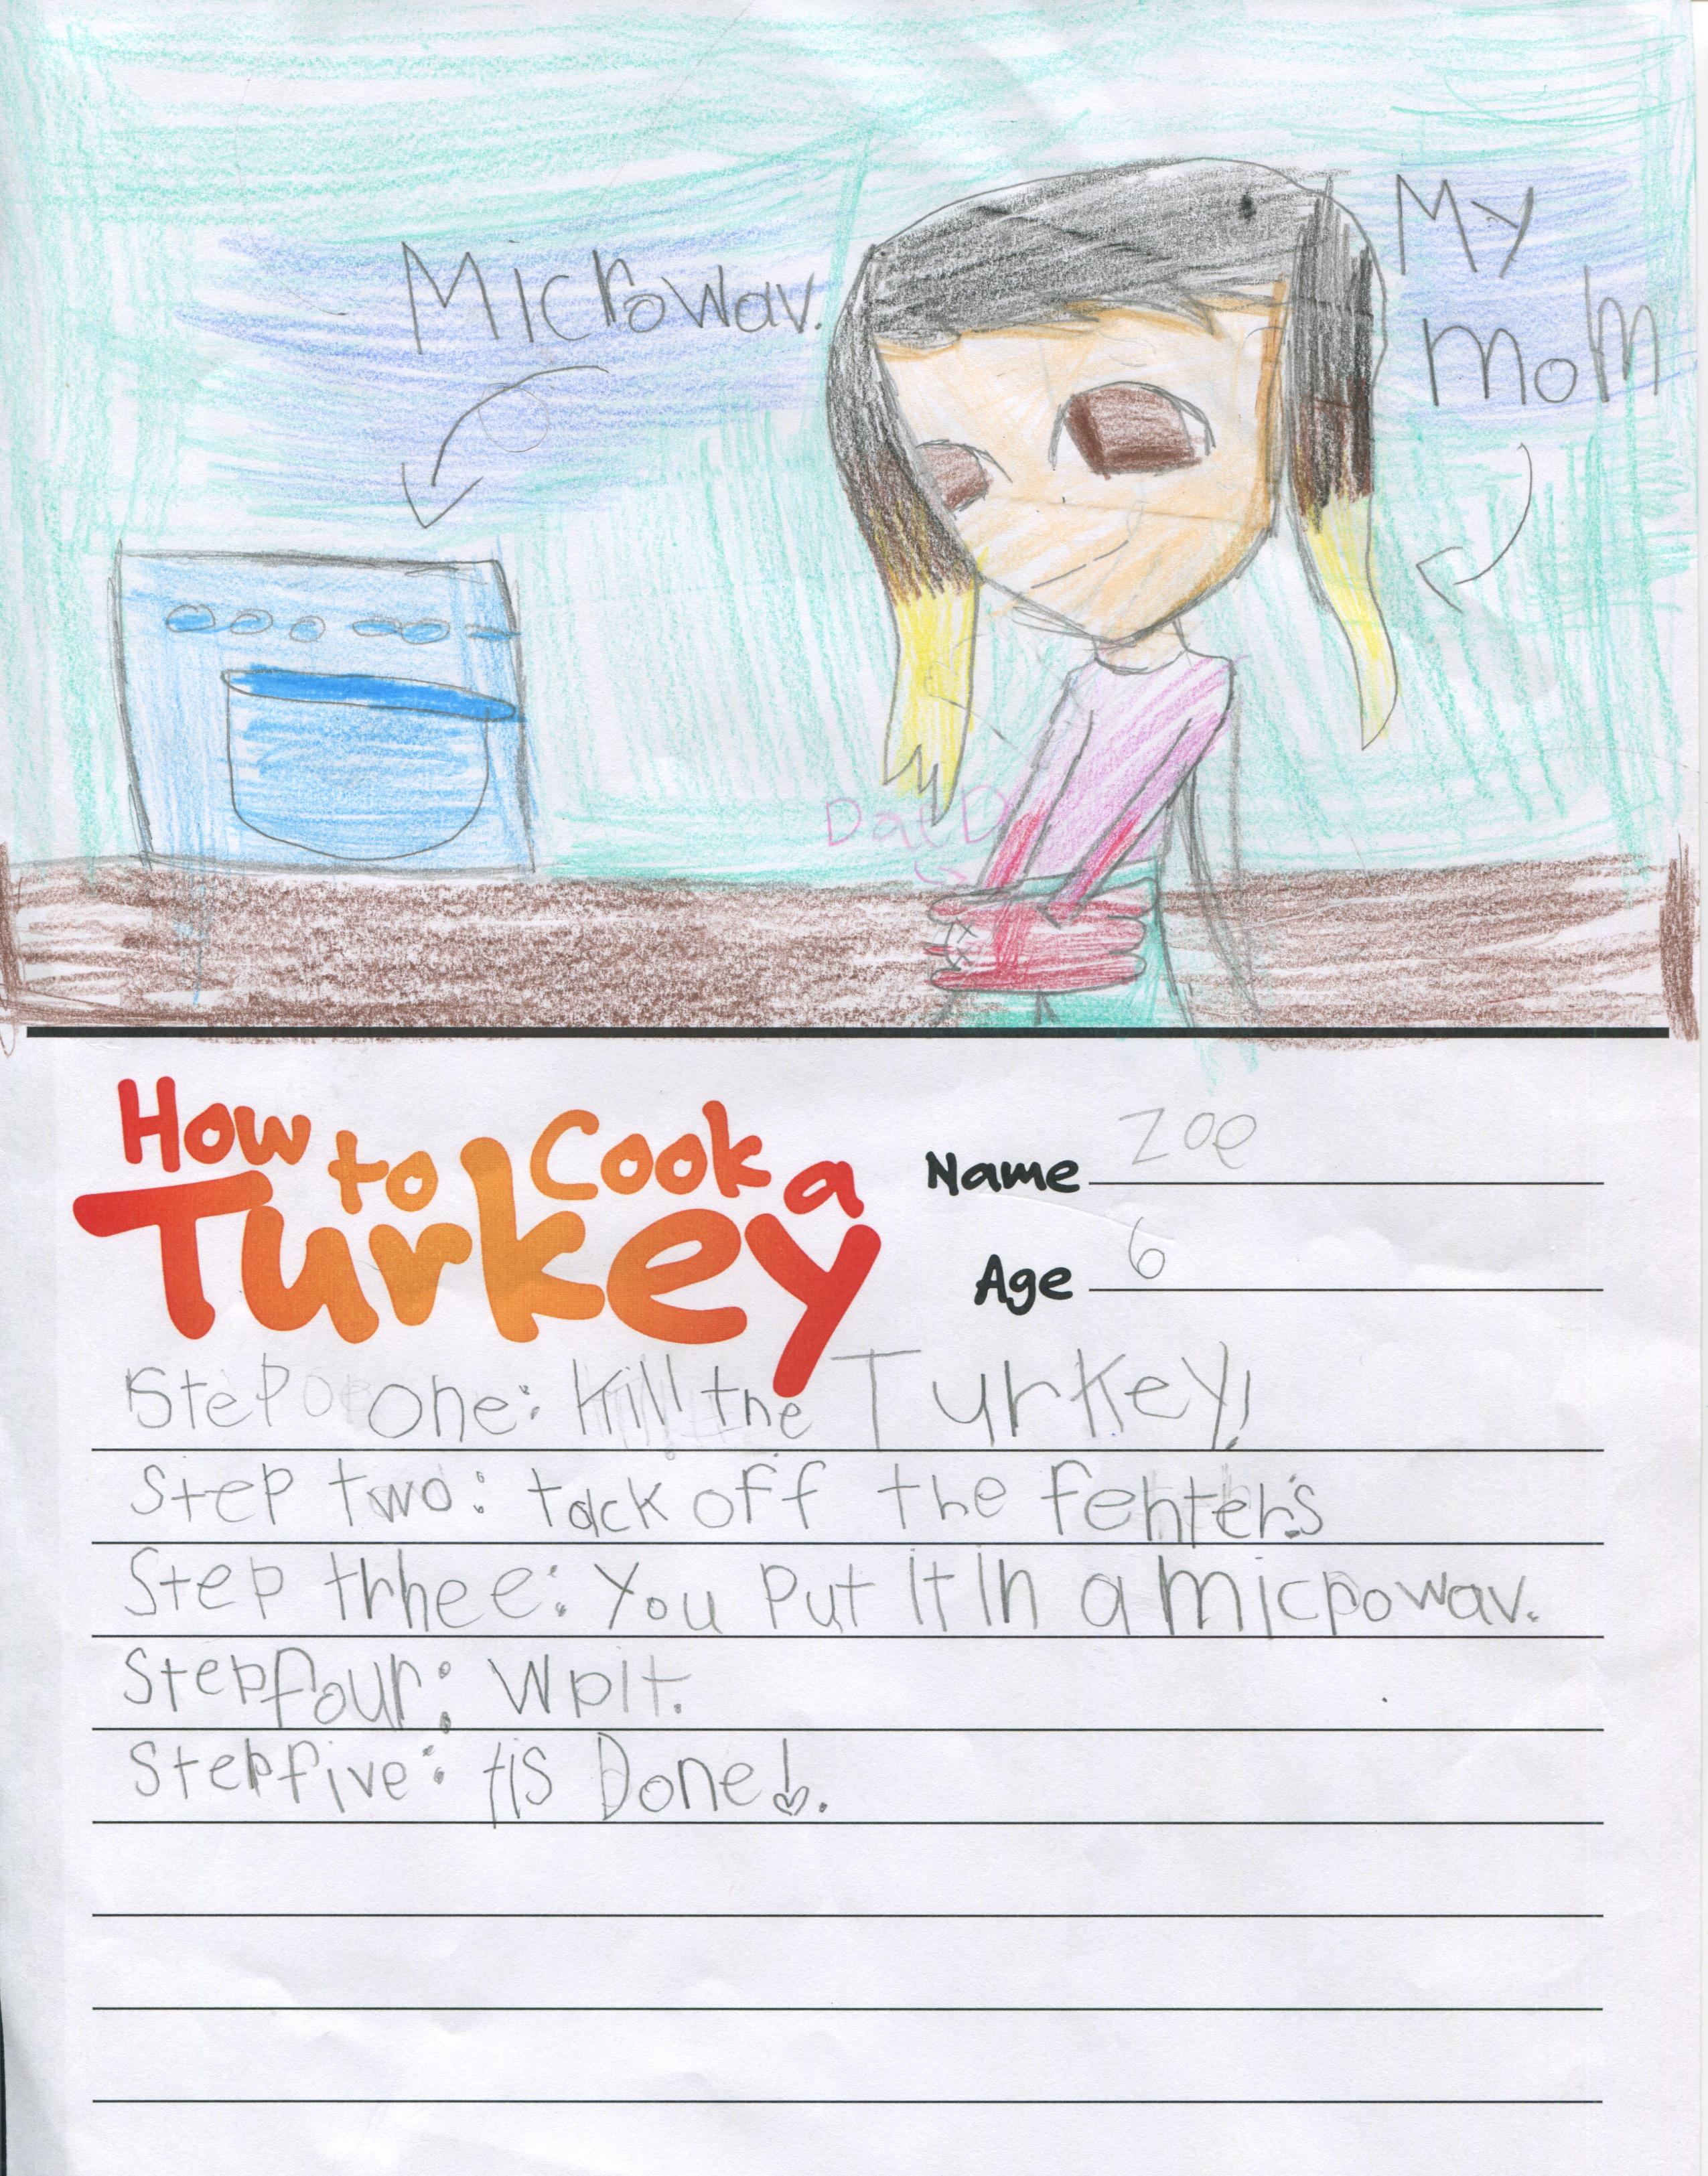 Microwav.
My
mom
DaeD
How to Cook a
Turkey
Name Zoe
Age 6
Step one: Kill the Turkey!
Step two: tack off the fehters
Step trhee: You Put it in a microwav.
Step four: Wait.
Step five: tis Done!.